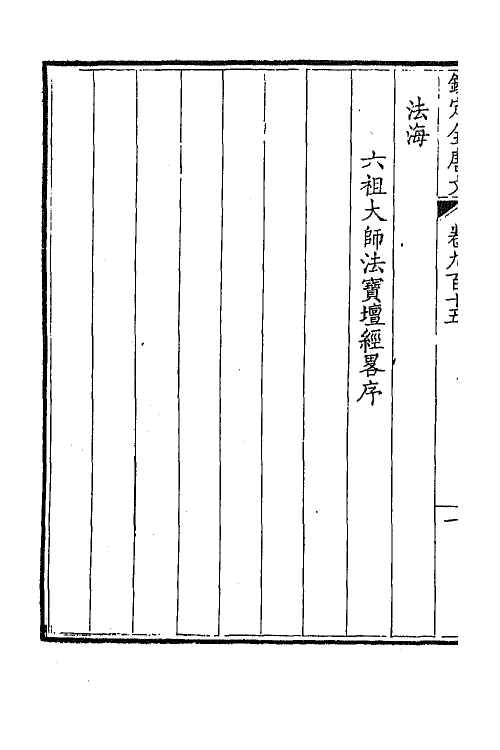 欽定全唐文 卷九百十五 一
法海
六祖大師法寶壇經畧序